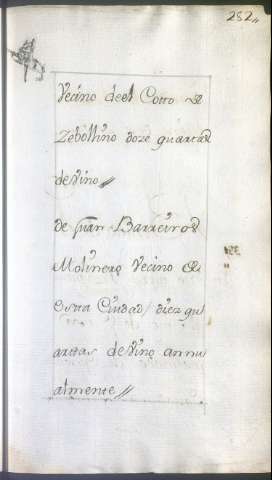 282,,
Vecino deel Coto de
Zebollino doze quartas
de vino//
de Juan Barreiro
Molinero Vecino de
esta Ciudad diez qu
artas de vino annu
almente//